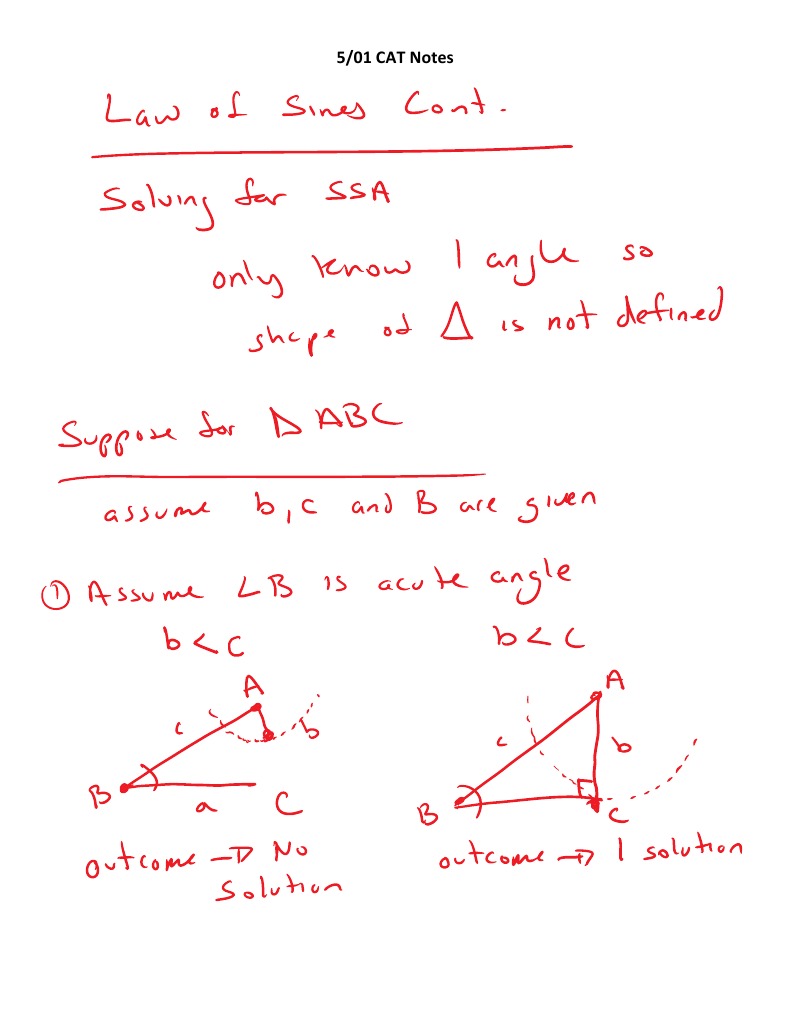 5/01 CAT Notes
Law of Sines Cont.
Solving for SSA
only know 1 angle so
shape of Δ is not defined
Suppose for Δ ABC
assume b, c and B are given
① Assume ∠B is acute angle
b < C b < C
A A
c b c b
B a C B C
outcome → No outcome → 1 solution
Solution